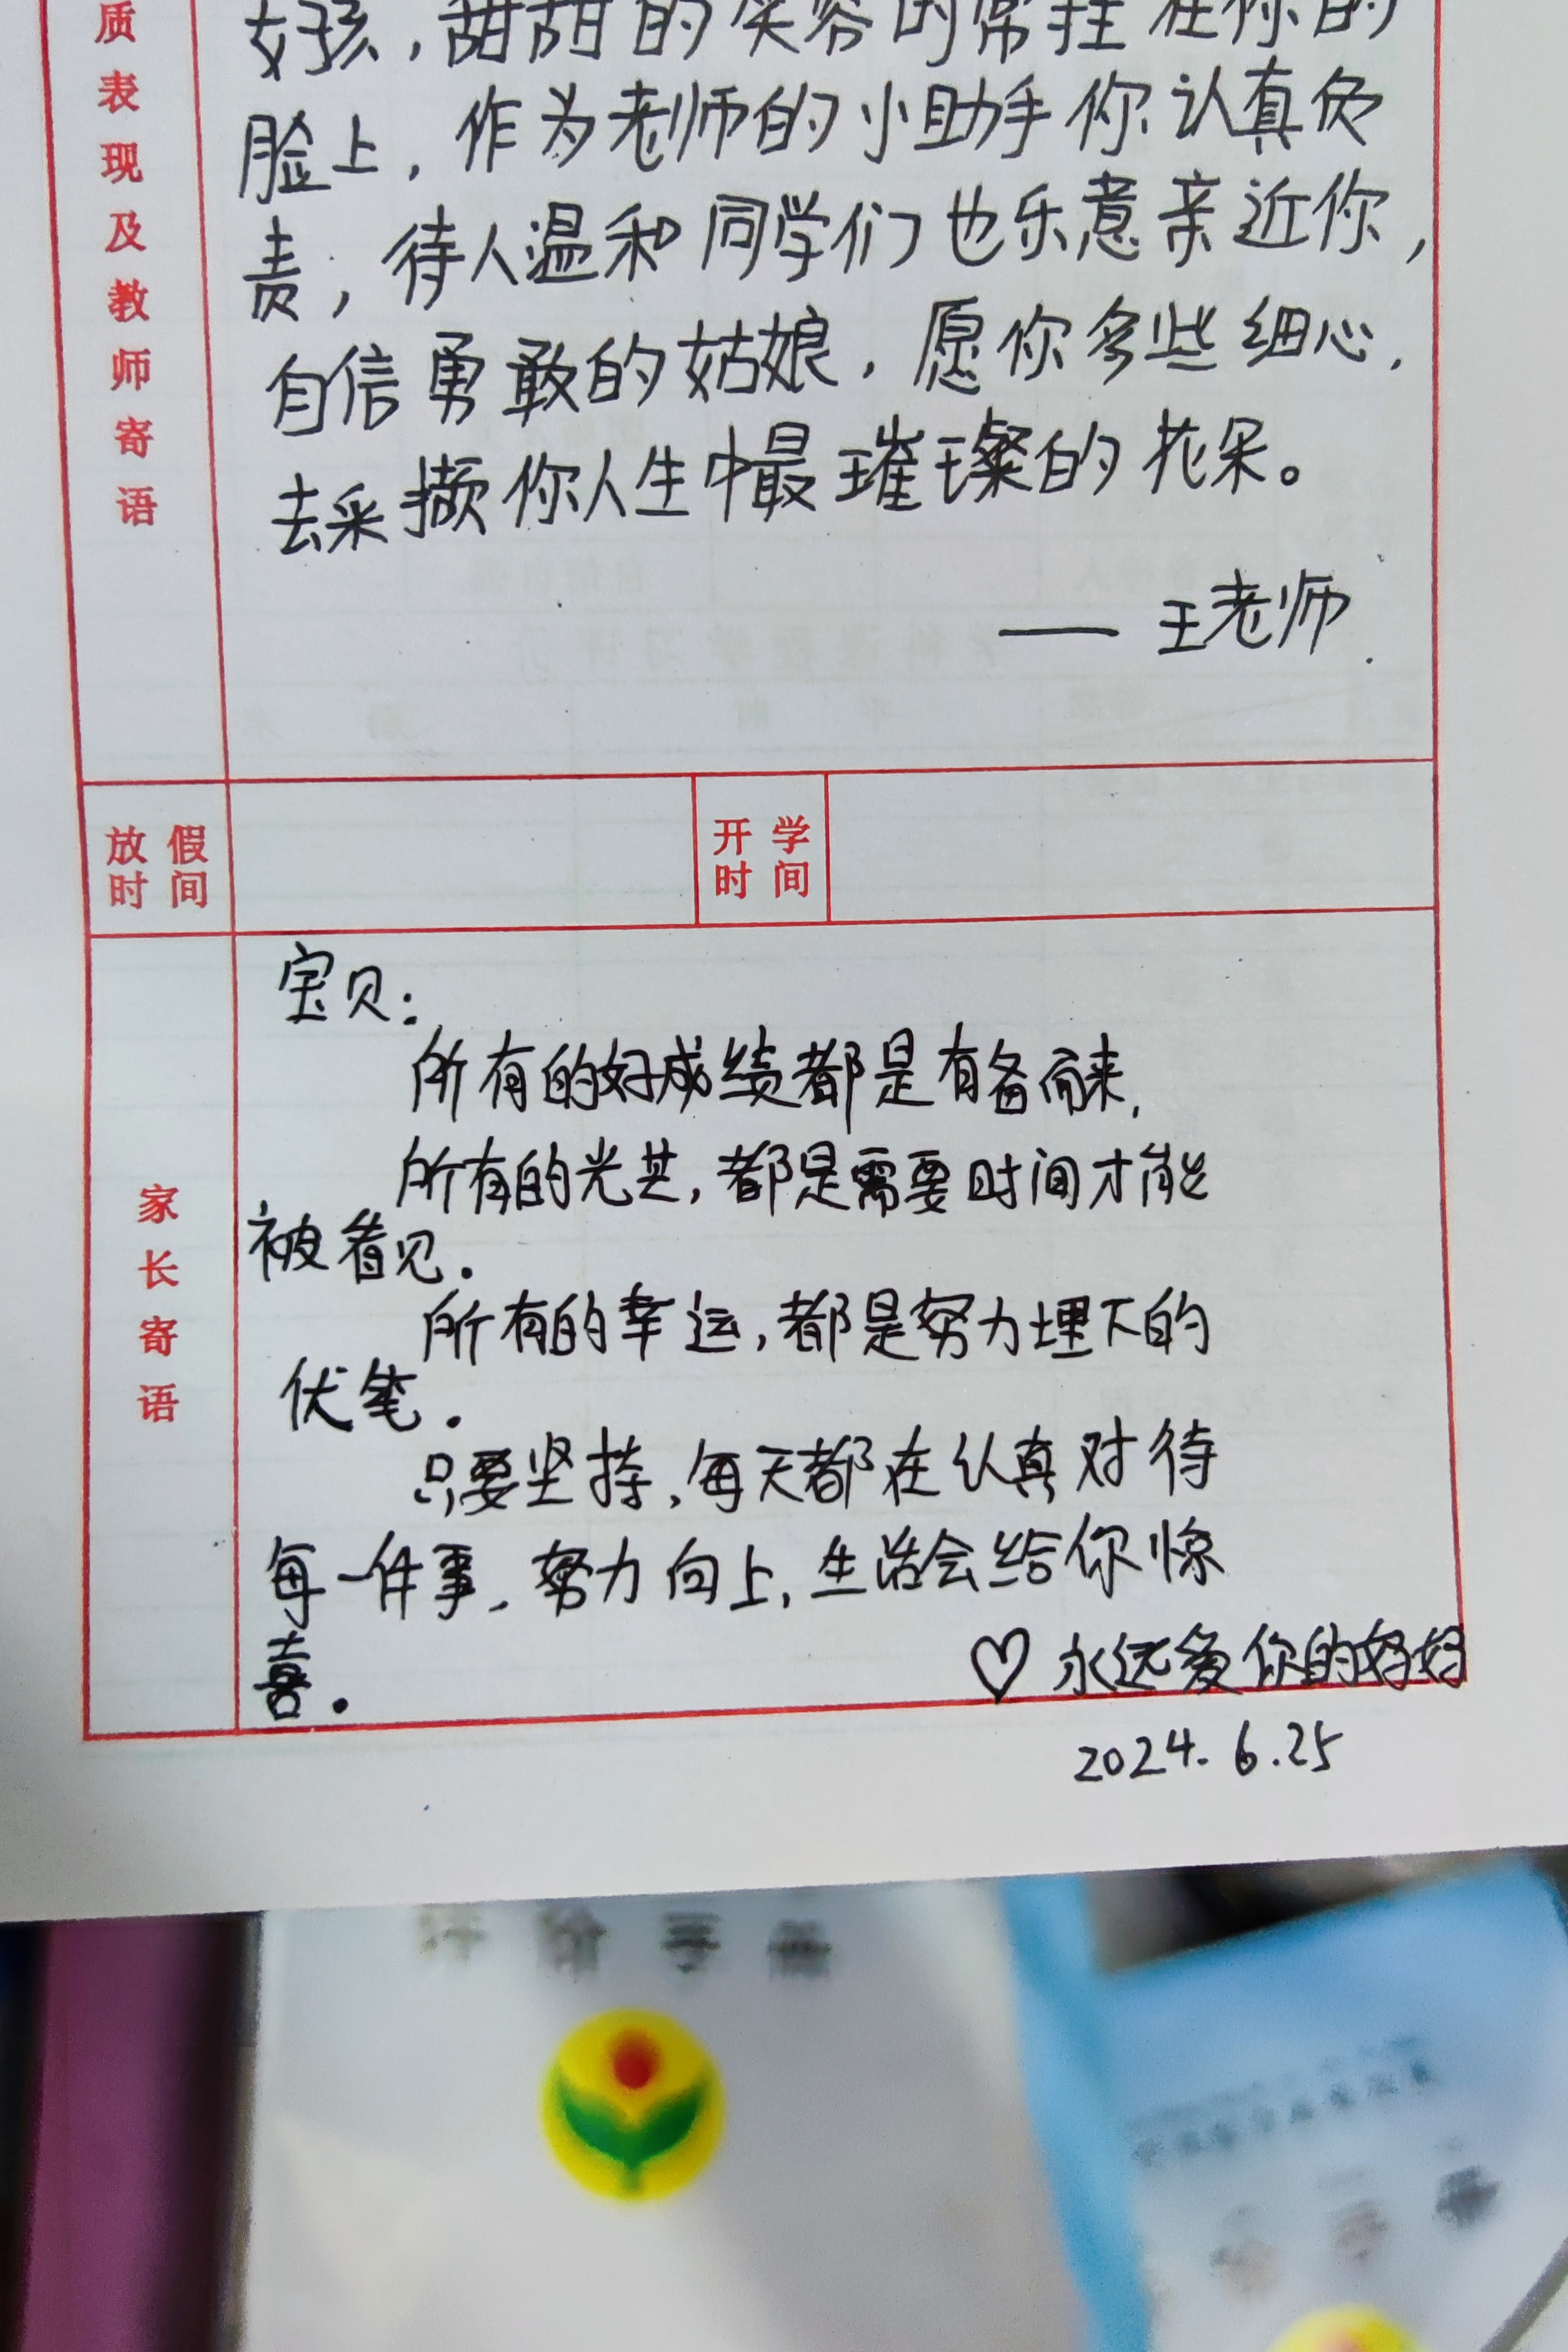 质表现及教师寄语
女孩，甜甜的笑容时常挂在你的
脸上，作为老师的小助手你认真负
责，待人温和同学们也乐意亲近你，
自信勇敢的姑娘，愿你多些细心，
去采撷你人生中最璀璨的花朵。
—— 王老师
放假时间
开学时间
家长寄语
宝贝：
所有的好成绩都是有备而来，
所有的光芒，都是需要时间才能
被看见.
所有的幸运，都是努力埋下的
伏笔.
只要坚持，每天都在认真对待
每一件事、努力向上，生活会给你惊
喜.
♡ 永远爱你的妈妈
2024.6.25